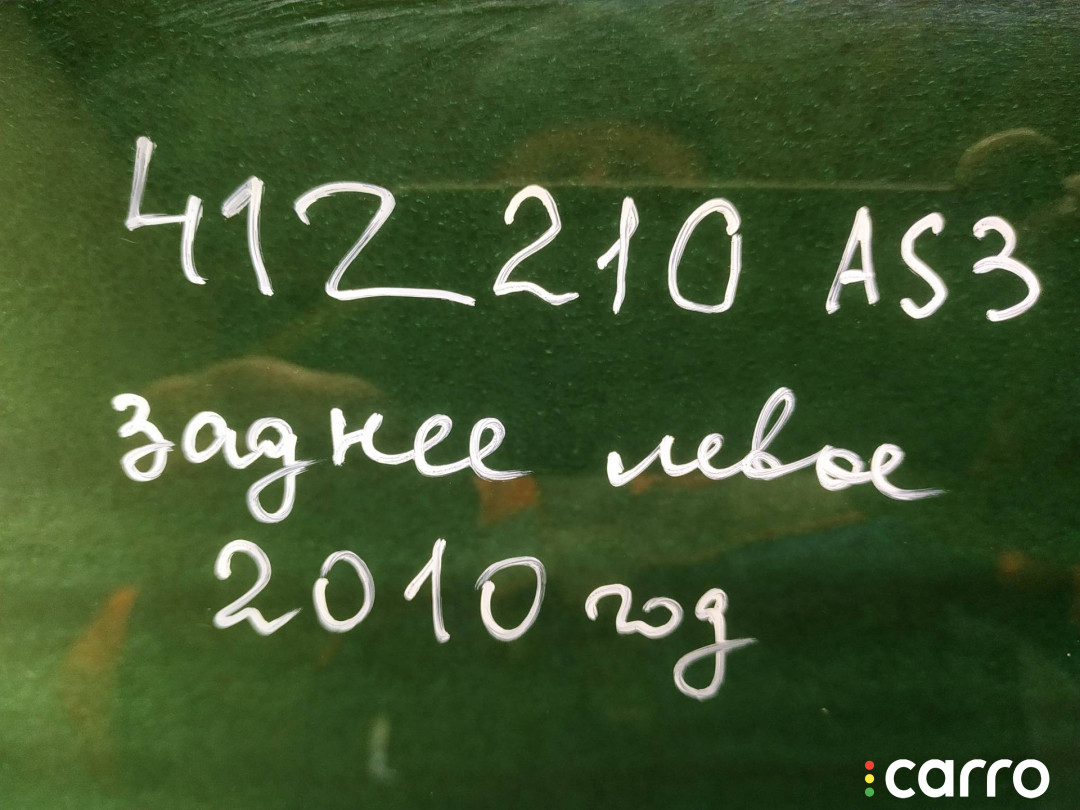 412 210 AS3
заднее левое
2010 год
carro